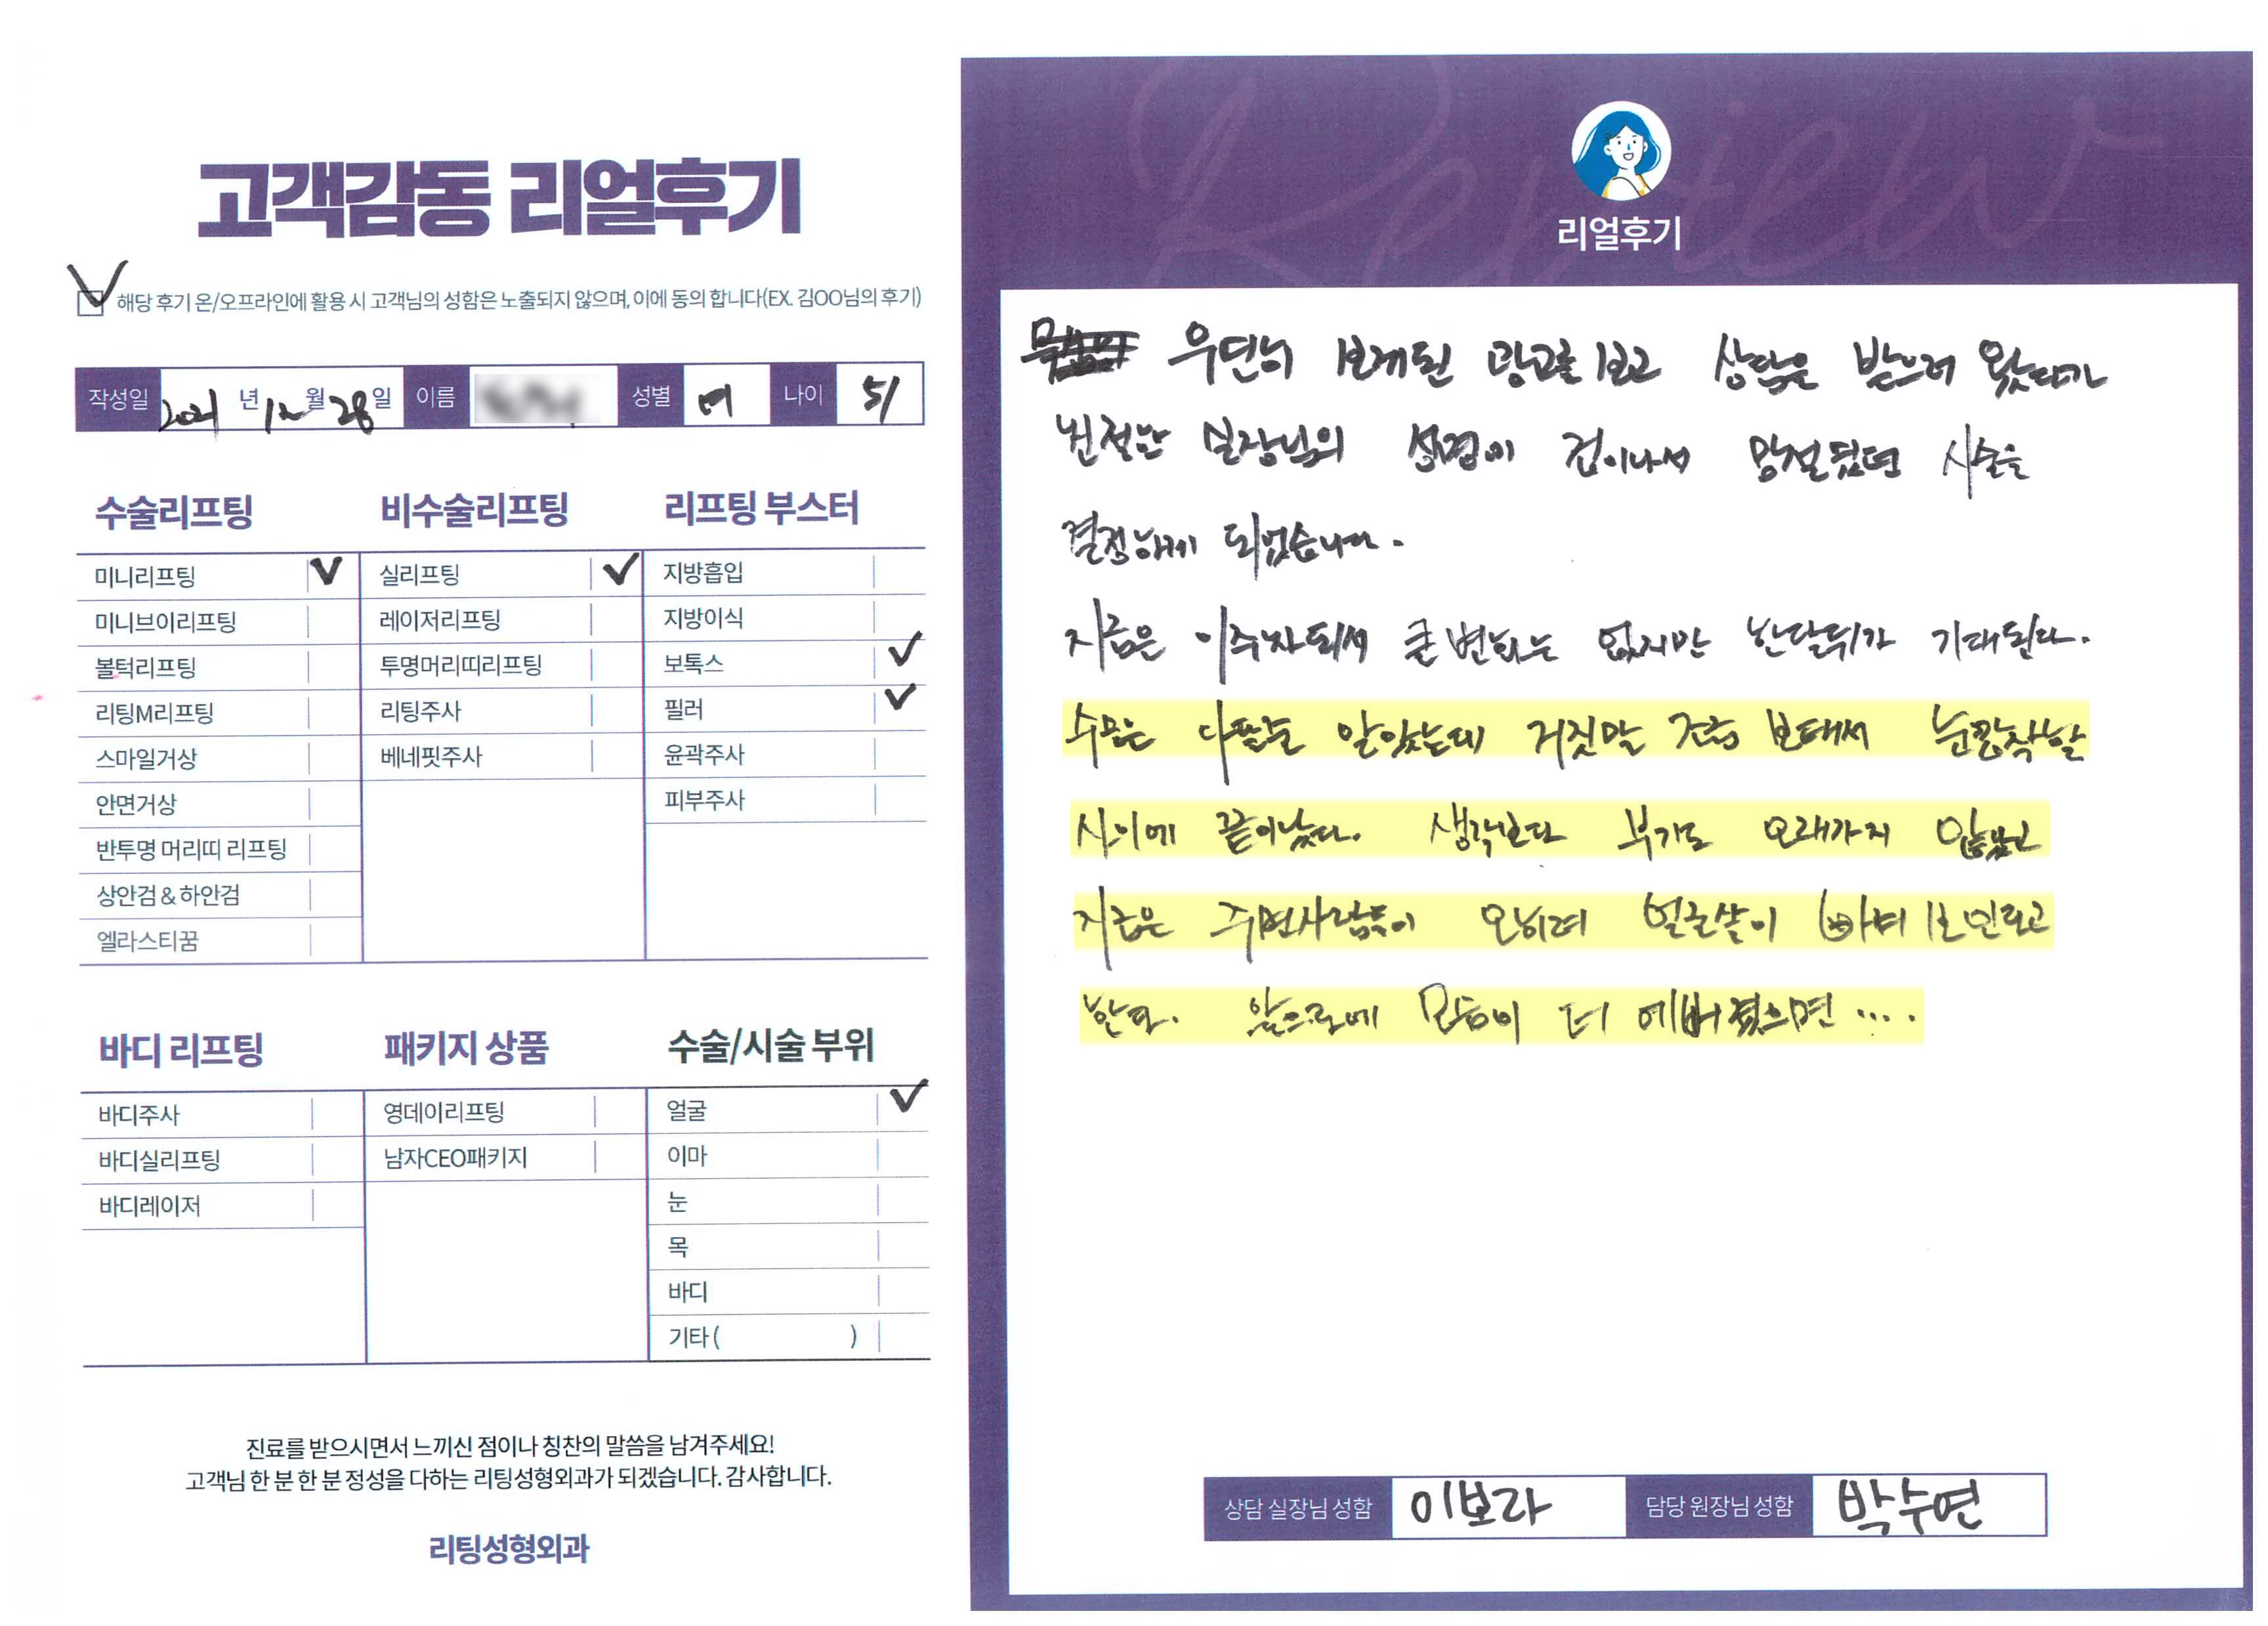 고객감동 리얼후기
해당 후기 온/오프라인에 활용 시 고객님의 성함은 노출되지 않으며, 이에 동의 합니다(EX. 김OO님의 후기)
작성일 2021 년 12 월 28 일 이름 성별 여 나이 51
수술리프팅
미니리프팅
미니브이리프팅
볼턱리프팅
리팅M리프팅
스마일거상
안면거상
반투명 머리띠 리프팅
상안검 & 하안검
엘라스티꿈
비수술리프팅
실리프팅
레이저리프팅
투명머리띠리프팅
리팅주사
베네핏주사
리프팅 부스터
지방흡입
지방이식
보톡스
필러
윤곽주사
피부주사
바디 리프팅
바디주사
바디실리프팅
바디레이저
패키지 상품
영데이리프팅
남자CEO패키지
수술/시술 부위
얼굴
이마
눈
목
바디
기타 ( )
진료를 받으시면서 느끼신 점이나 칭찬의 말씀을 남겨주세요!
고객님 한 분 한 분 정성을 다하는 리팅성형외과가 되겠습니다. 감사합니다.
리팅성형외과
Review
리얼후기
우연히 보게된 광고를 보고 상담을 받으러 왔다가
친절한 실장님의 설명이 겁이나서 망설였던 시술을
결정하게 되었습니다.
지금은 이주차되서 큰 변화는 없지만 한달뒤가 기대된다.
수면은 아픈줄 알았는데 거짓말 조금 보태서 눈깜짝할
사이에 끝이났다. 생각보다 부기도 오래가지 않았고
지금은 주변사람들이 오히려 얼굴살이 빠져 보인다고
한다. 앞으로에 모습이 더 예뻐졌으면 ....
상담 실장님 성함 이보라 담당 원장님 성함 박수연